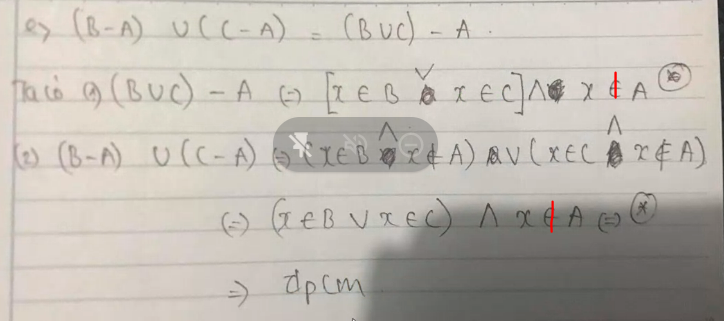 e) (B-A) ∪ (C-A) = (B∪C) - A.
Ta có (1) (B∪C) - A (=) [x ∈ B ∨ x ∈ C] ∧ x ∉ A (*)
(2) (B-A) ∪ (C-A) (=) (x∈B ∧ x∉A) ∨ (x∈C ∧ x∉A)
(=) (x∈B ∨ x∈C) ∧ x∉A (=) (*)
=> dpcm